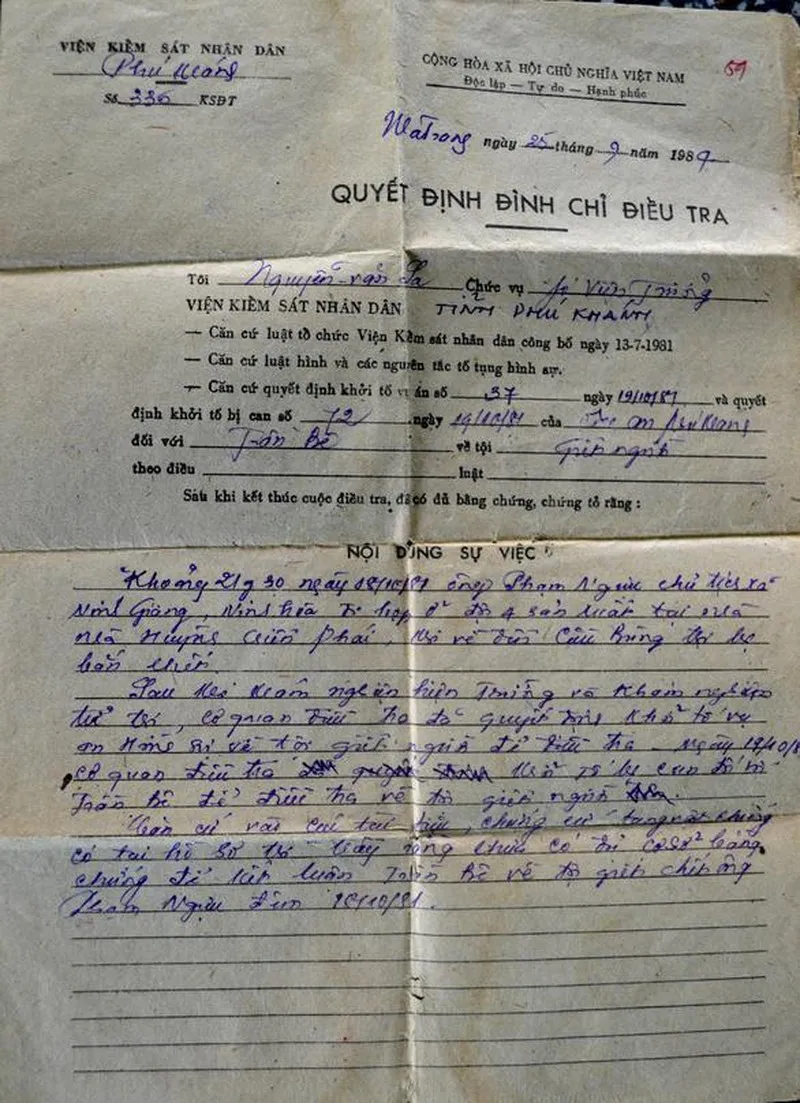 VIỆN KIỂM SÁT NHÂN DÂN
Phú Khánh
Số 336 KSĐT
CỘNG HÒA XÃ HỘI CHỦ NGHĨA VIỆT NAM
Độc lập — Tự do — Hạnh phúc
51
Nha Trang ngày 25 tháng 9 năm 1989
QUYẾT ĐỊNH ĐÌNH CHỈ ĐIỀU TRA
Tôi Nguyễn Văn Chức vụ Viện Trưởng
VIỆN KIỂM SÁT NHÂN DÂN TỈNH PHÚ KHÁNH
— Căn cứ luật tổ chức Viện Kiểm sát nhân dân công bố ngày 13-7-1981
— Căn cứ luật hình và các nguyên tắc tố tụng hình sự.
— Căn cứ quyết định khởi tố vụ án số 37 ngày 19/10/81 và quyết
định khởi tố bị can số 72 ngày 19/10/81 của
đối với Trần Bê về tội Giết người
theo điều luật
Sau khi kết thúc cuộc điều tra, đã có đủ bằng chứng, chứng tỏ rằng :
NỘI DUNG SỰ VIỆC
Khoảng 21g30 ngày 18/10/81 ông Phạm Ngưu chủ tịch xã
Ninh Giang, Ninh Hòa đi họp ở đội 4 sản xuất tại nhà
Huỳnh Phái, khi về đến Cầu thì bị
bắn chết.
Sau khi khám nghiệm hiện trường và khám nghiệm
tử thi, cơ quan điều tra đã quyết định khởi tố vụ
án hình sự về tội giết người để điều tra – Ngày 19/10/8
cơ quan điều tra khởi tố bị can đối với
Trần Bê để điều tra về tội giết người
Căn cứ vào các tài liệu, chứng cứ, tang vật không
có tại hồ sơ thì thấy rằng chưa có đủ cơ sở bằng
chứng để kết luận Trần Bê về tội giết chết ông
Phạm Ngưu đêm 18/10/81.